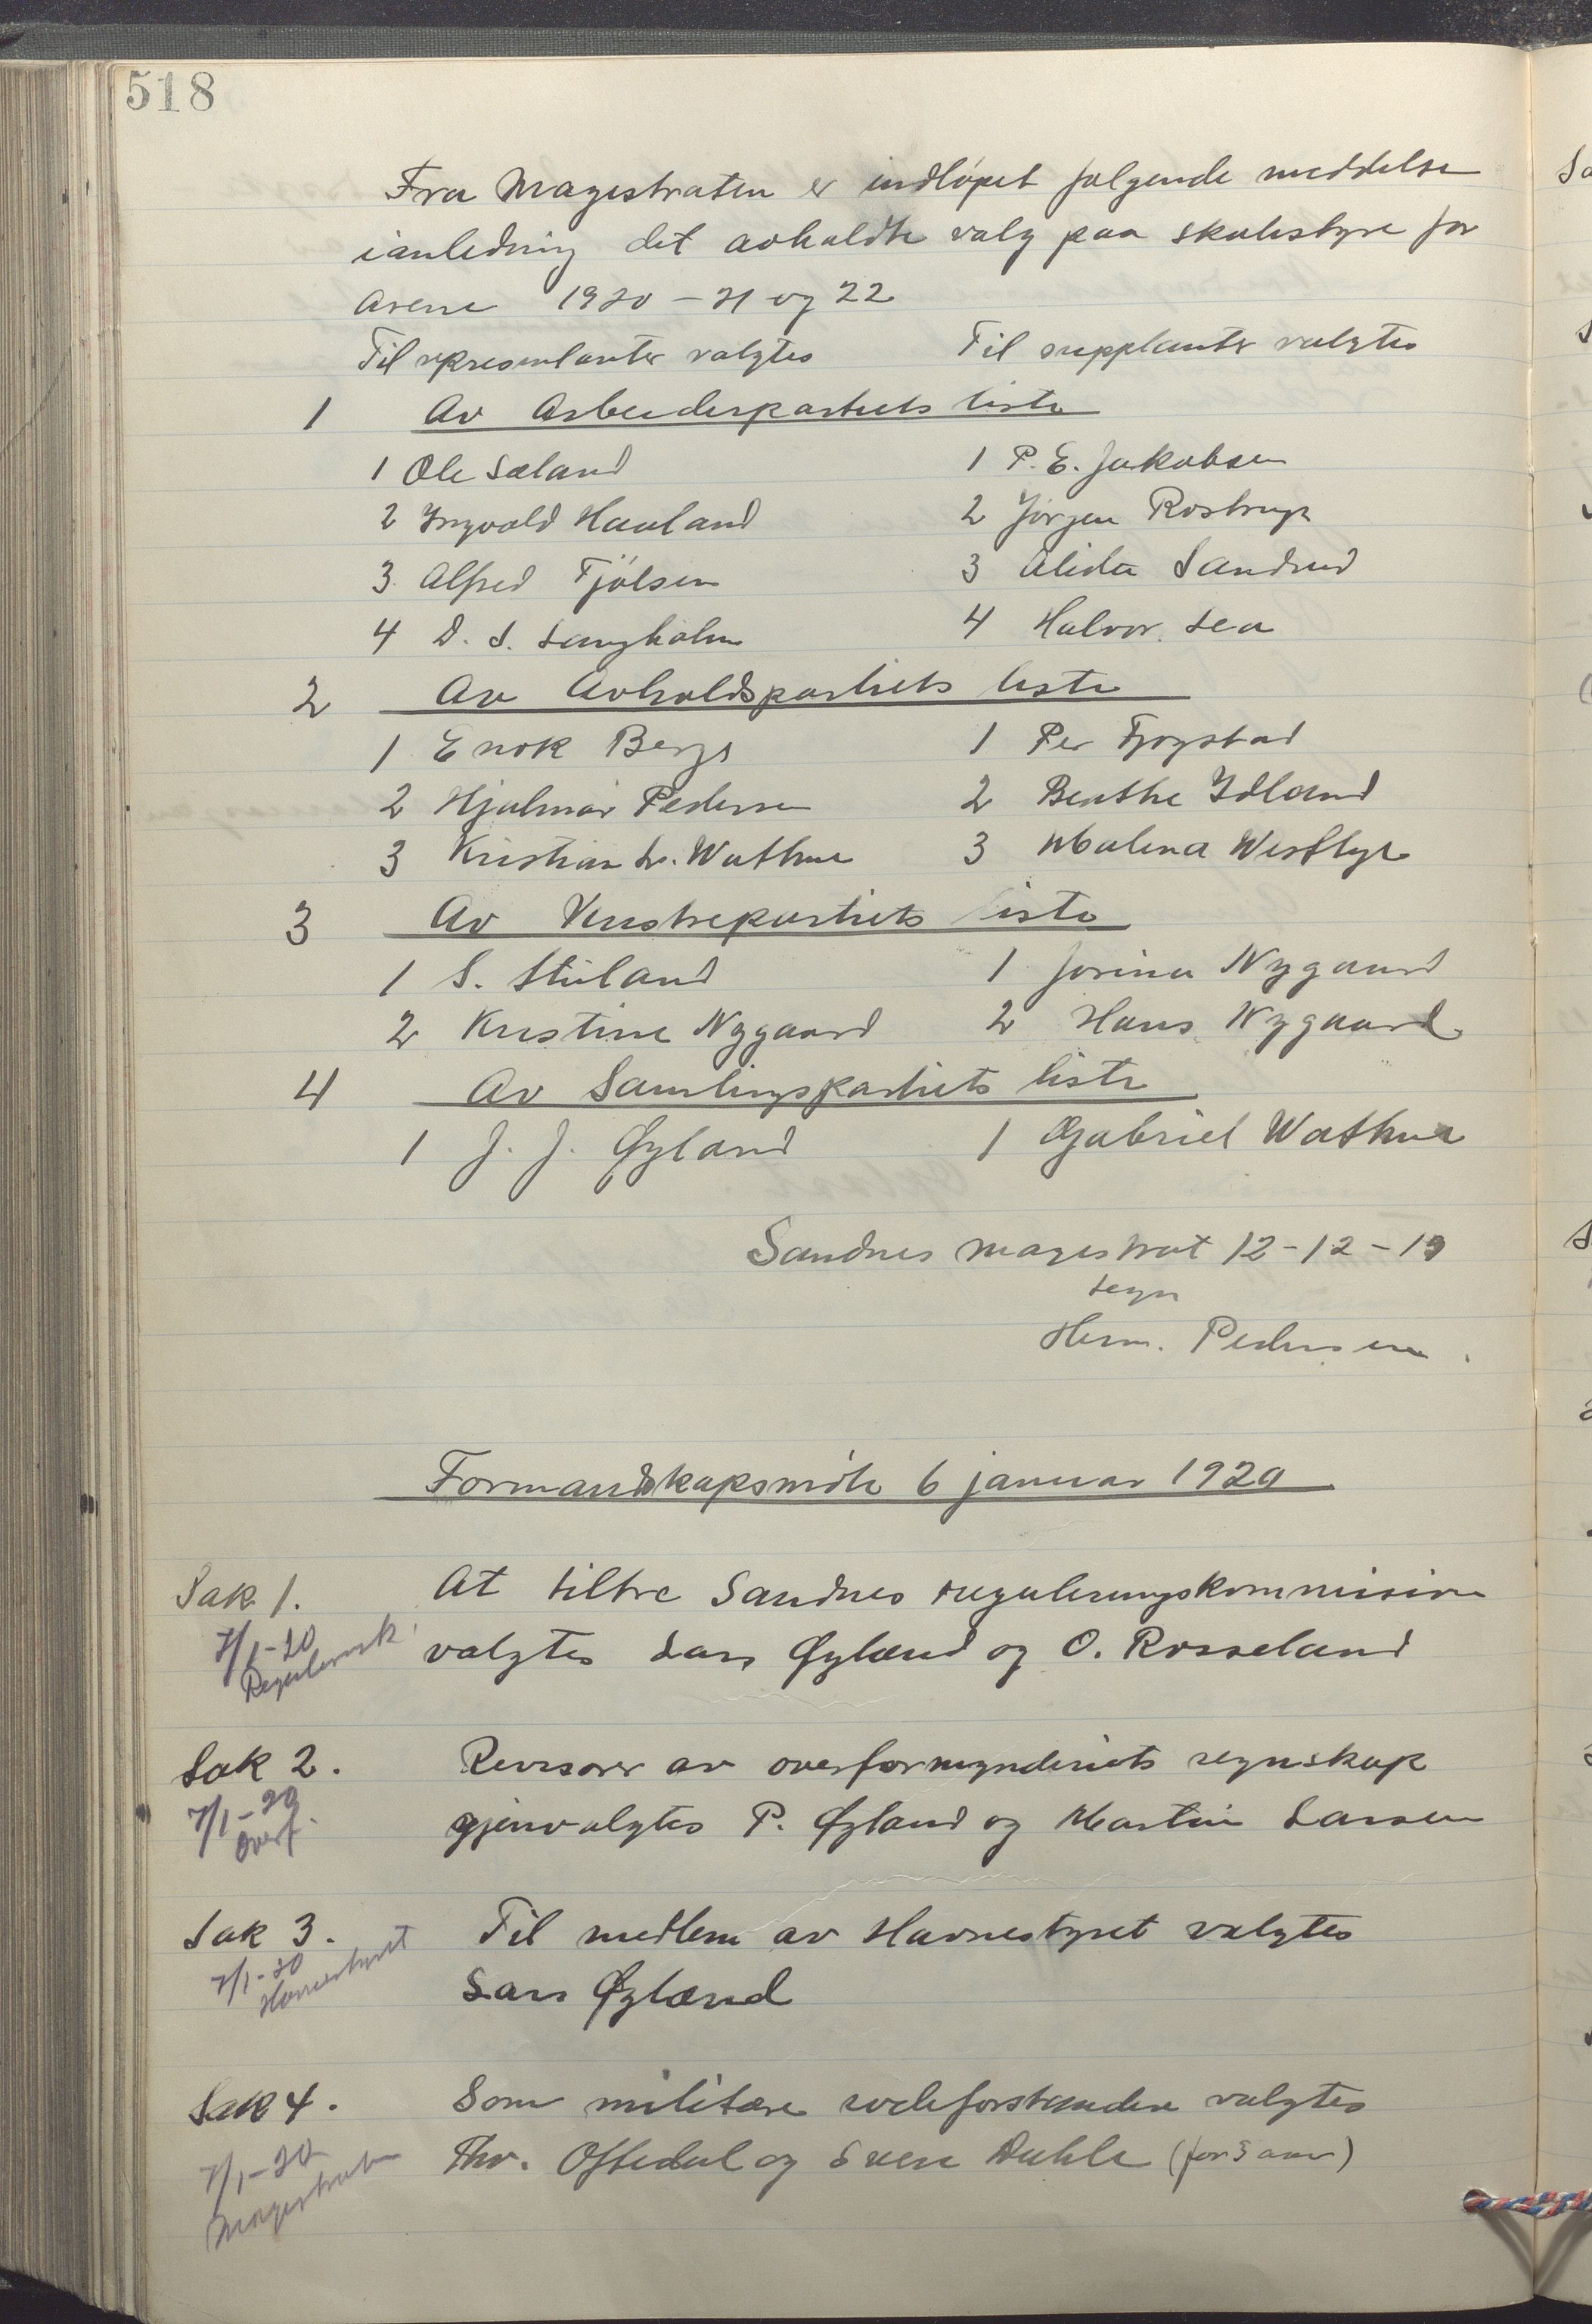 518
Fra Magistraten er indløpet følgende meddelse
ianledning det avholdte valg paa skolestyre for
Arene 1920 – 21 og 22
Til representanter valgtes Til supplanter valgtes
1 Av Arbeiderpartiets liste
1 Ole Sæland 1 P. E. Jakobsen
2 Ingvald Hauland 2 Jørgen Rostrup
3 Alfred Fjølsen 3 Alida Sandred
4 D. S. Langholm 4 Halvor Lea
2 Av Avholdspartiets liste
1 Enok Berge 1 Per Fjogstad
2 Hjalmar Pedersen 2 Benthe Idland
3 Kristian L. Wathne 3 Malena Westlye
3 Av Venstrepartiets liste
1 S. Stüland 1 Jorina Nygaard
2 Kristine Nygaard 2 Hans Nygaard
4 Av Samlingspartiets liste
1 J. J. Øgland 1 Gabriel Wathne
Sandnes magistrat 12-12-19
segn
Herm. Pedersen.
Formandskapsmøte 6 januar 1920
Sak 1. At tiltre Sandnes reguleringskommision
7/1-20 valgtes Lars Øglænd og O. Rosseland
Regulernsk.
Sak 2. Revisorer av overformynderiets regnskap
7/1-20 gjenvalgtes P. Øgland og Martin Larsen
Overf.
Sak 3. Til medlem av Havnestyret valgtes
7/1-20 Havnestyret
Lars Øglænd
Sak 4. Som militære rodeforstandere valgtes
7/1-20 Thv. Oftedal og Svere Dahle (for 3 aar)
Magistraten